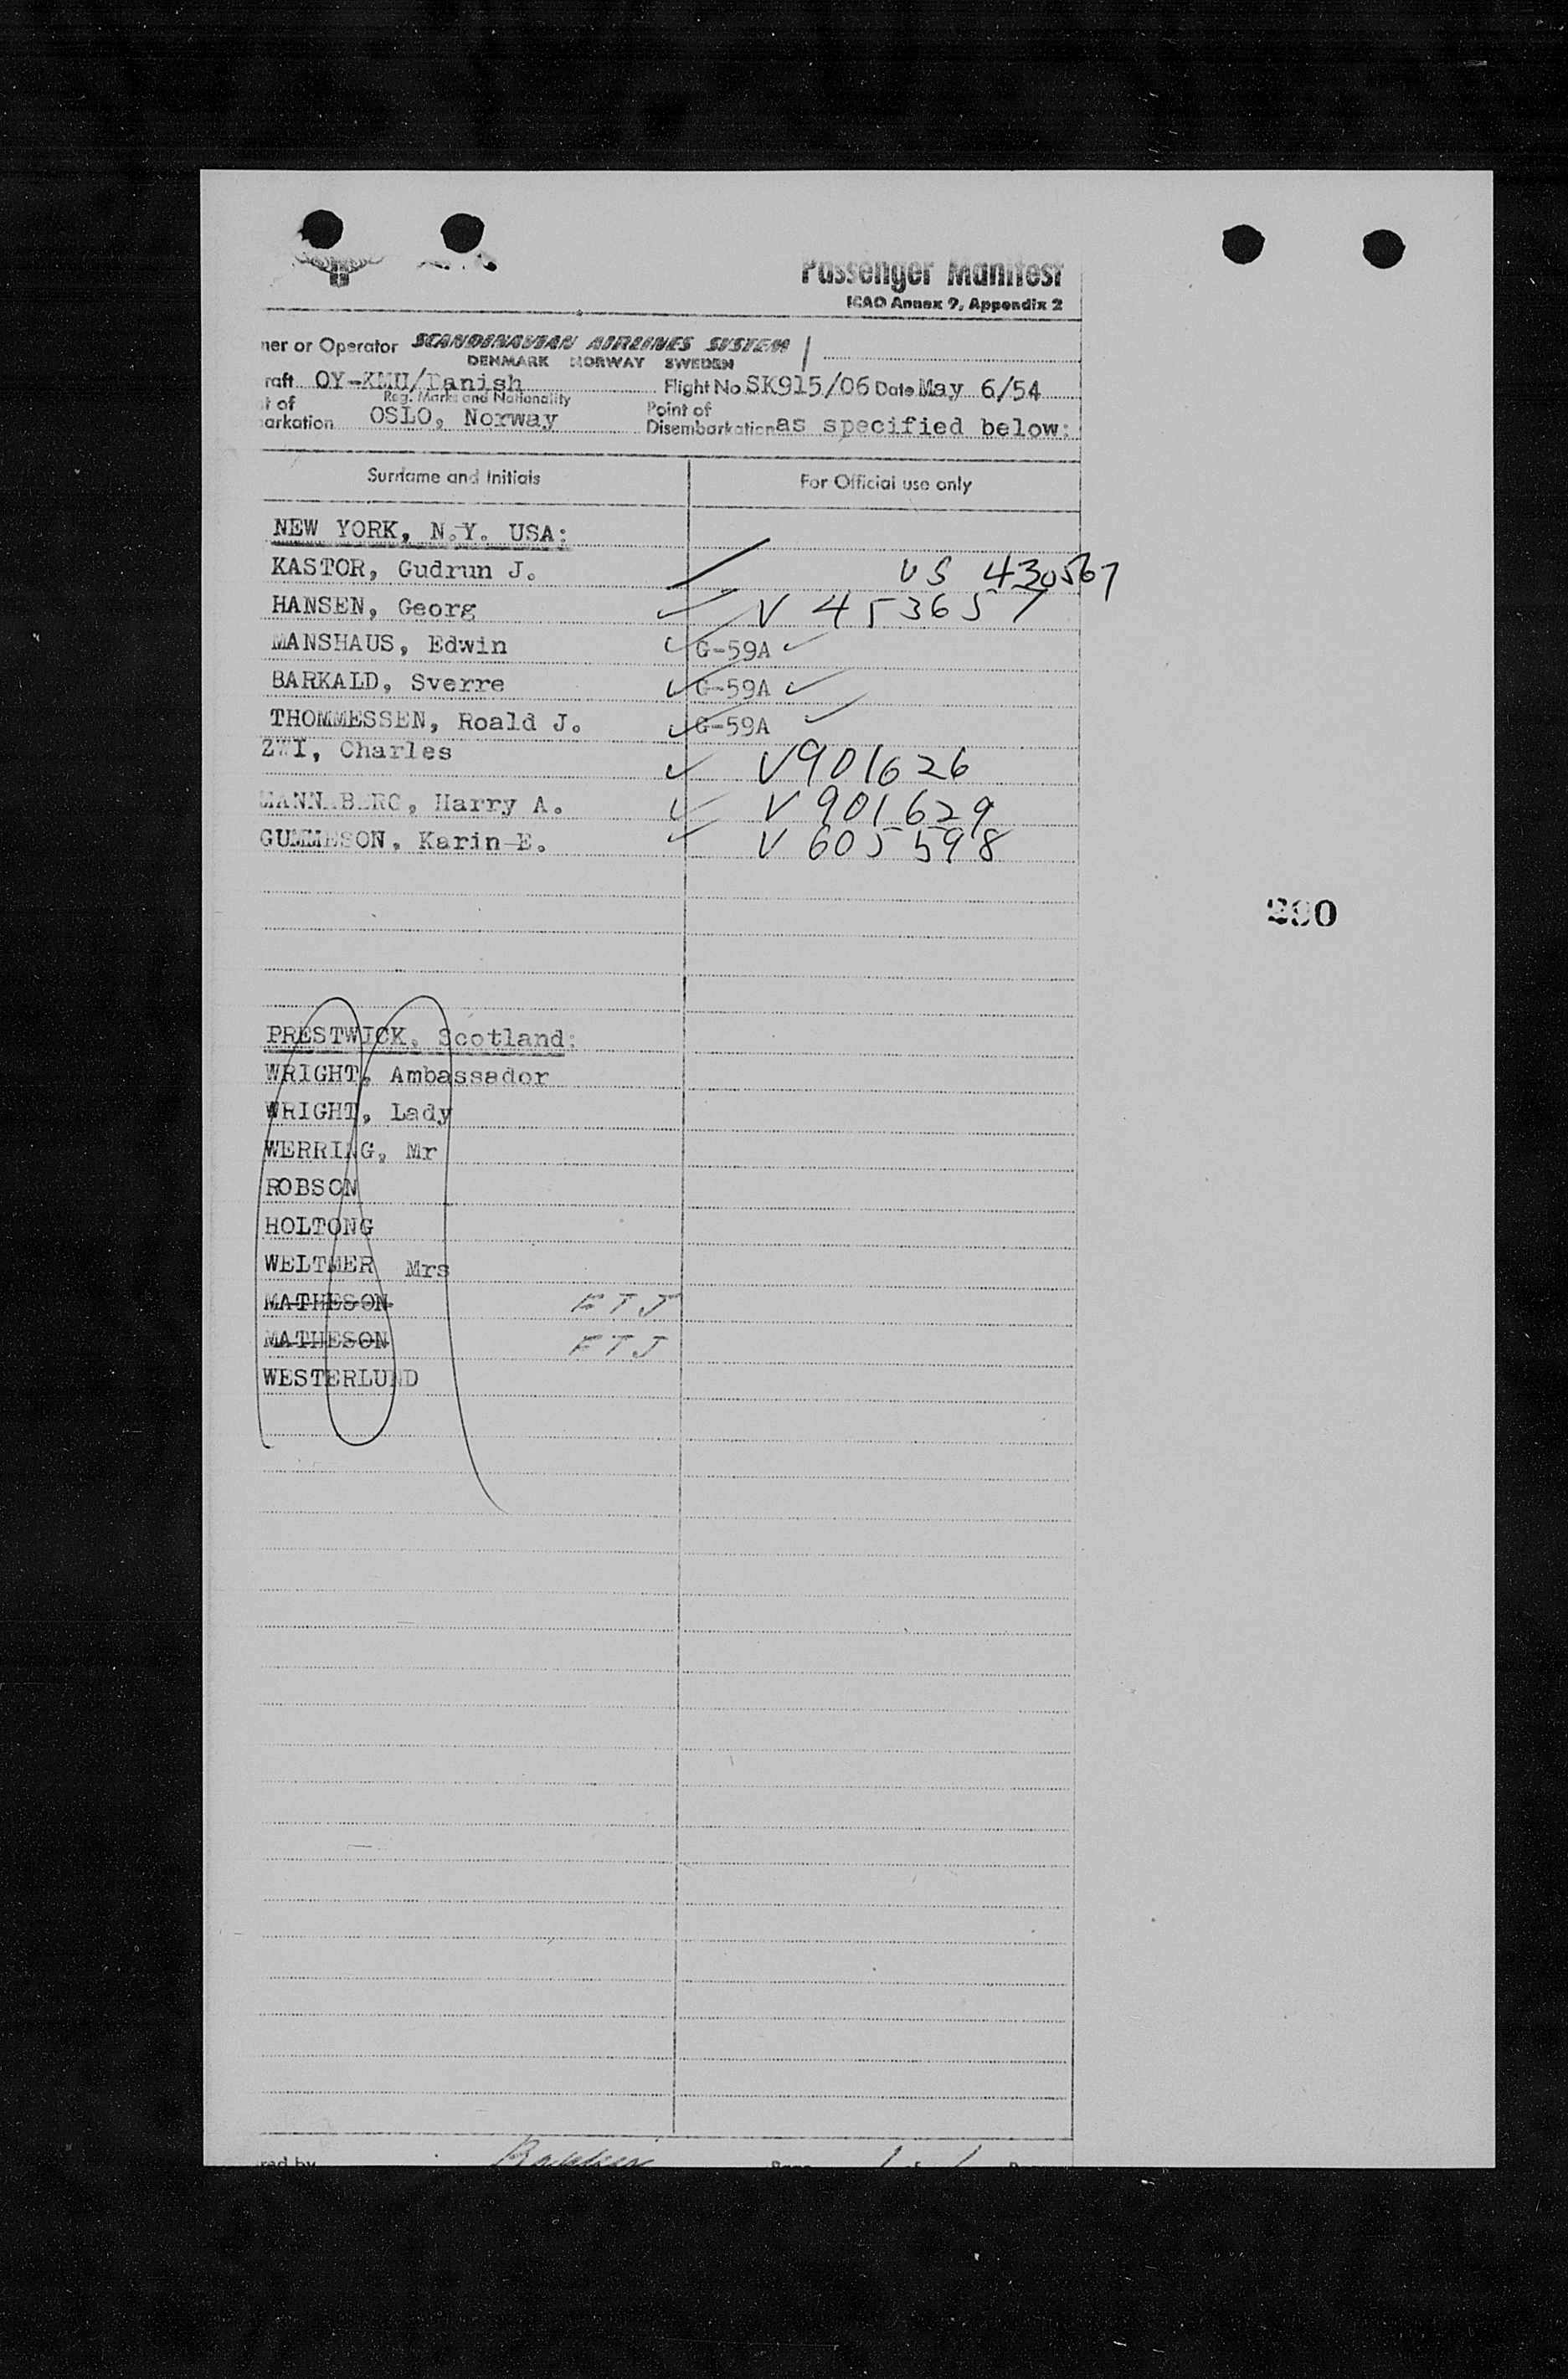 Passenger Manifest
ICAO Annex 9, Appendix 2
ner or Operator SCANDINAVIAN AIRLINES SYSTEM
DENMARK NORWAY SWEDEN
raft OY-KMU/Danish Flight No SK915/06 Date May 6/54
Reg. Marks and Nationality
t of arkation OSLO, Norway Point of Disembarkation as specified below:
Surname and Initials For Official use only
NEW YORK, N.Y. USA:
KASTOR, Gudrun J. US 430567
HANSEN, Georg V 453657
MANSHAUS, Edwin G-59A
BARKALD, Sverre G-59A
THOMMESSEN, Roald J. G-59A
Charles V901626
Harry A. V 901629
GUMMESON, Karin E. V 605598
290
PRESTWICK, Scotland:
WRIGHT, Ambassador
WRIGHT, Lady
WERRING, Mr
ROBSON
HOLTONG
WELTMER Mrs
MATHESON FTJ
MATHESON FTJ
WESTERLUND
red by